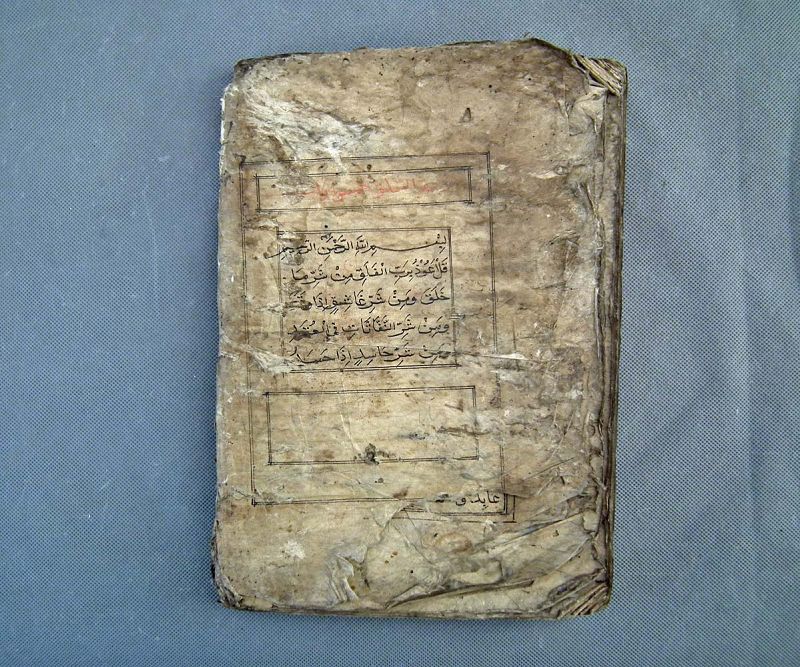 بِسْمِ اللهِ الرَّحْمٰنِ الرَّحِيْمِ
قُلْ اَعُوْذُ بِرَبِّ الْفَلَقِ مِنْ شَرِّ مَا
خَلَقَ وَمِنْ شَرِّ غَاسِقٍ اِذَا
وَمِنْ شَرِّ النَّفَّاثَاتِ فِي الْعُقَدِ
وَمِنْ شَرِّ حَاسِدٍ اِذَا حَسَدَ
عَابِدٌ و